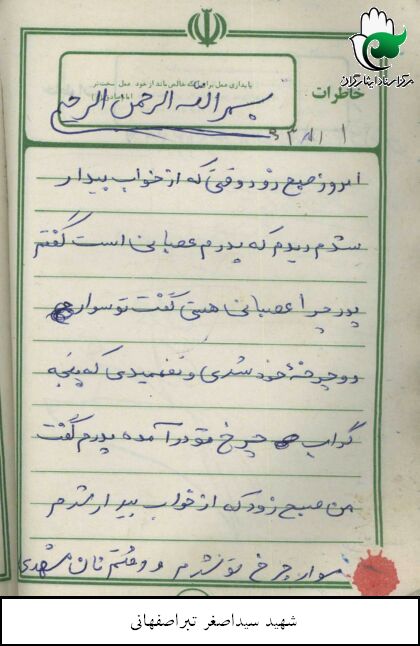 مرکز اسناد ایثارگران
خاطرات
پایداری عمل برای که خالص ماند از خود عمل سخت‌تر
بسم الله الرحمن الرحیم
امروز صبح زود وقتی که از خواب بیدار
شدم دیدم که پدرم عصبانی است گفتم
پدر چرا عصبانی هستی گفت تو سوار
دوچرخهٔ خود شدی و نفهمیدی که پنجه
رکاب چرخ تو در آمده پدرم گفت
من صبح زود که از خواب بیدار شدم
سوار چرخ تو شدم و رفتم نان مشهدی
شهید سیداصغر تبراصفهانی